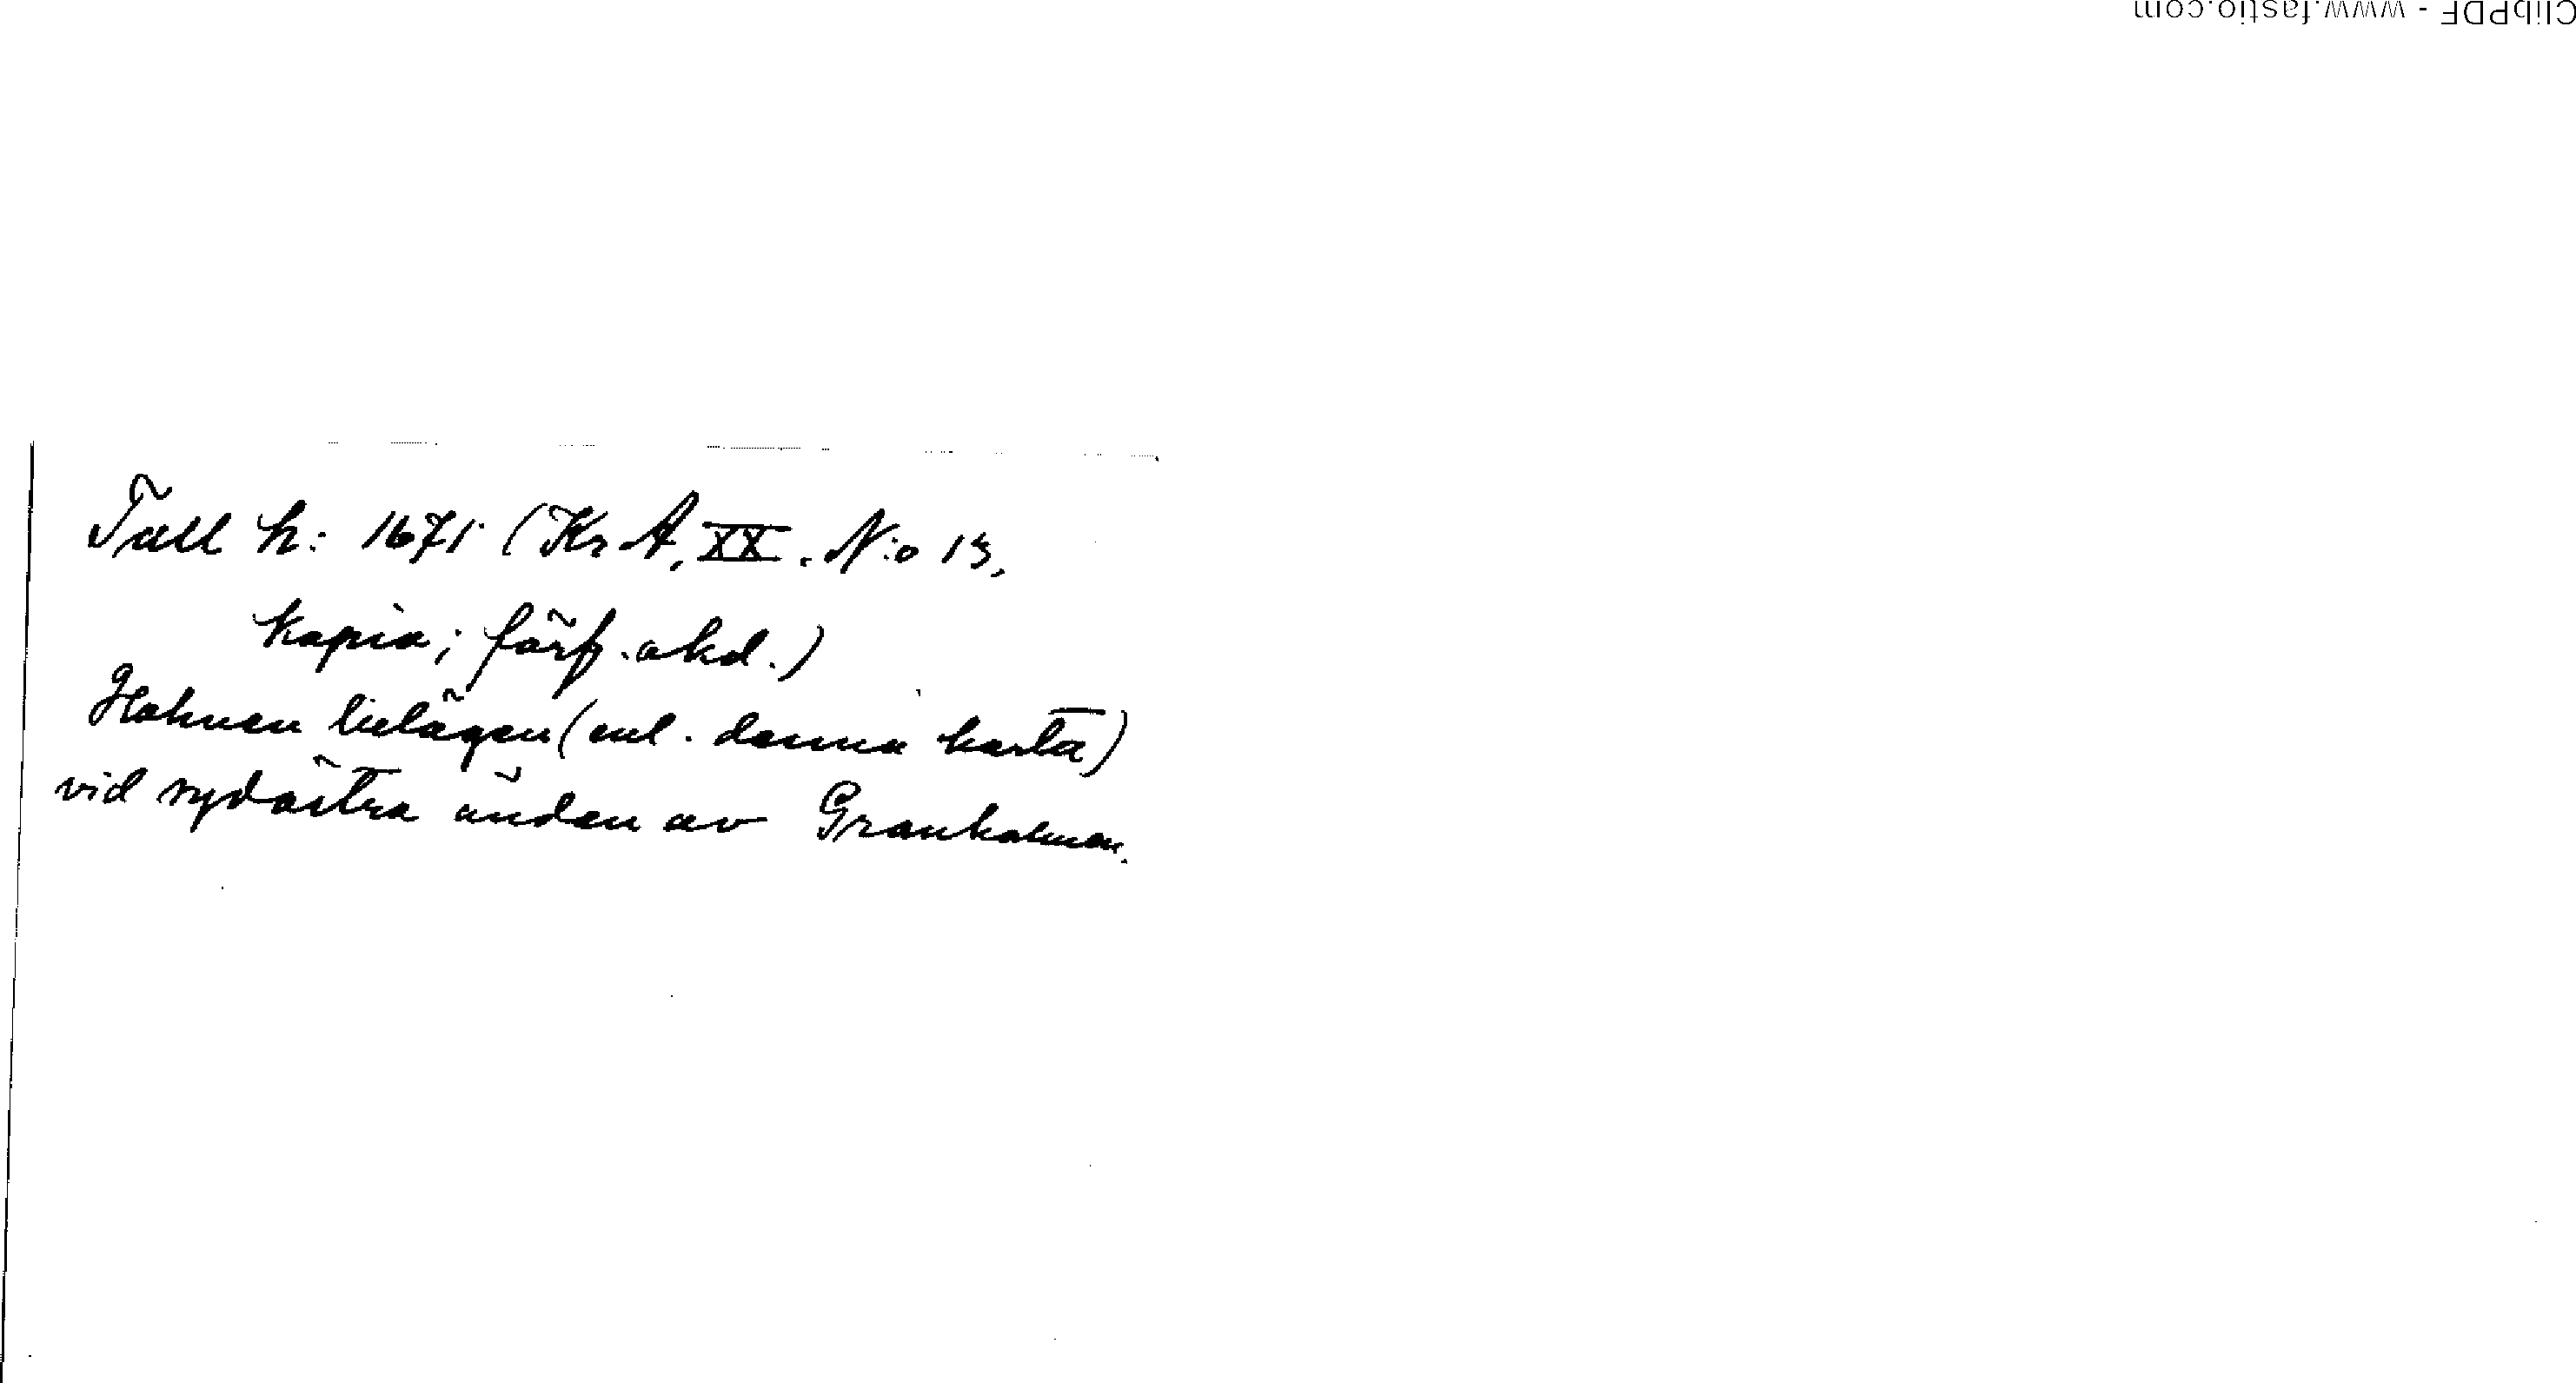 ClibPDF - www.fastio.com
Tall h: 1671 (Kr A, XX. N:o 13,
kopia; förf. akd.)
Holmen belägen (enl. denna karta)
vid sydöstra änden av Granholmen.